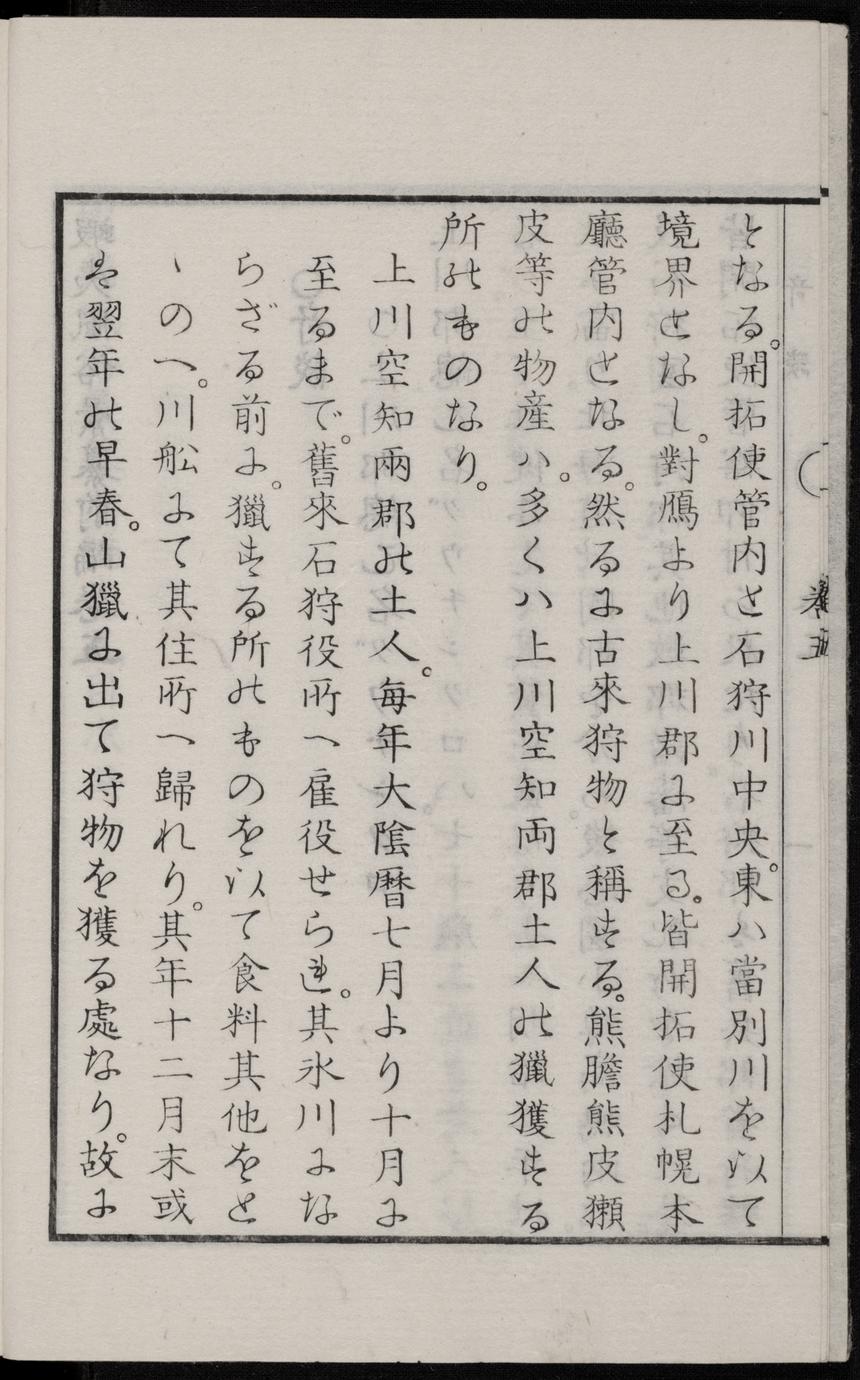 となる。開拓使管内と石狩川中央。東ハ當別川を以て
境界となし。對鴈より上川郡に至る。皆開拓使札幌本
廳管内となる。然るに古來狩物と稱する。熊膽熊皮獺
皮等の物産ハ。多くハ上川空知両郡土人の獵獲する
所のものなり。
上川空知兩郡の土人。每年大陰暦七月より十月に
至るまで。舊來石狩役所へ雇役せられ。其氷川にな
らざる前に。獵する所のものを以て食料其他をと
ゝのへ。川舩にて其住所へ歸れり。其年十二月末或
は翌年の早春。山獵に出て狩物を獲る處なり。故に
巻五